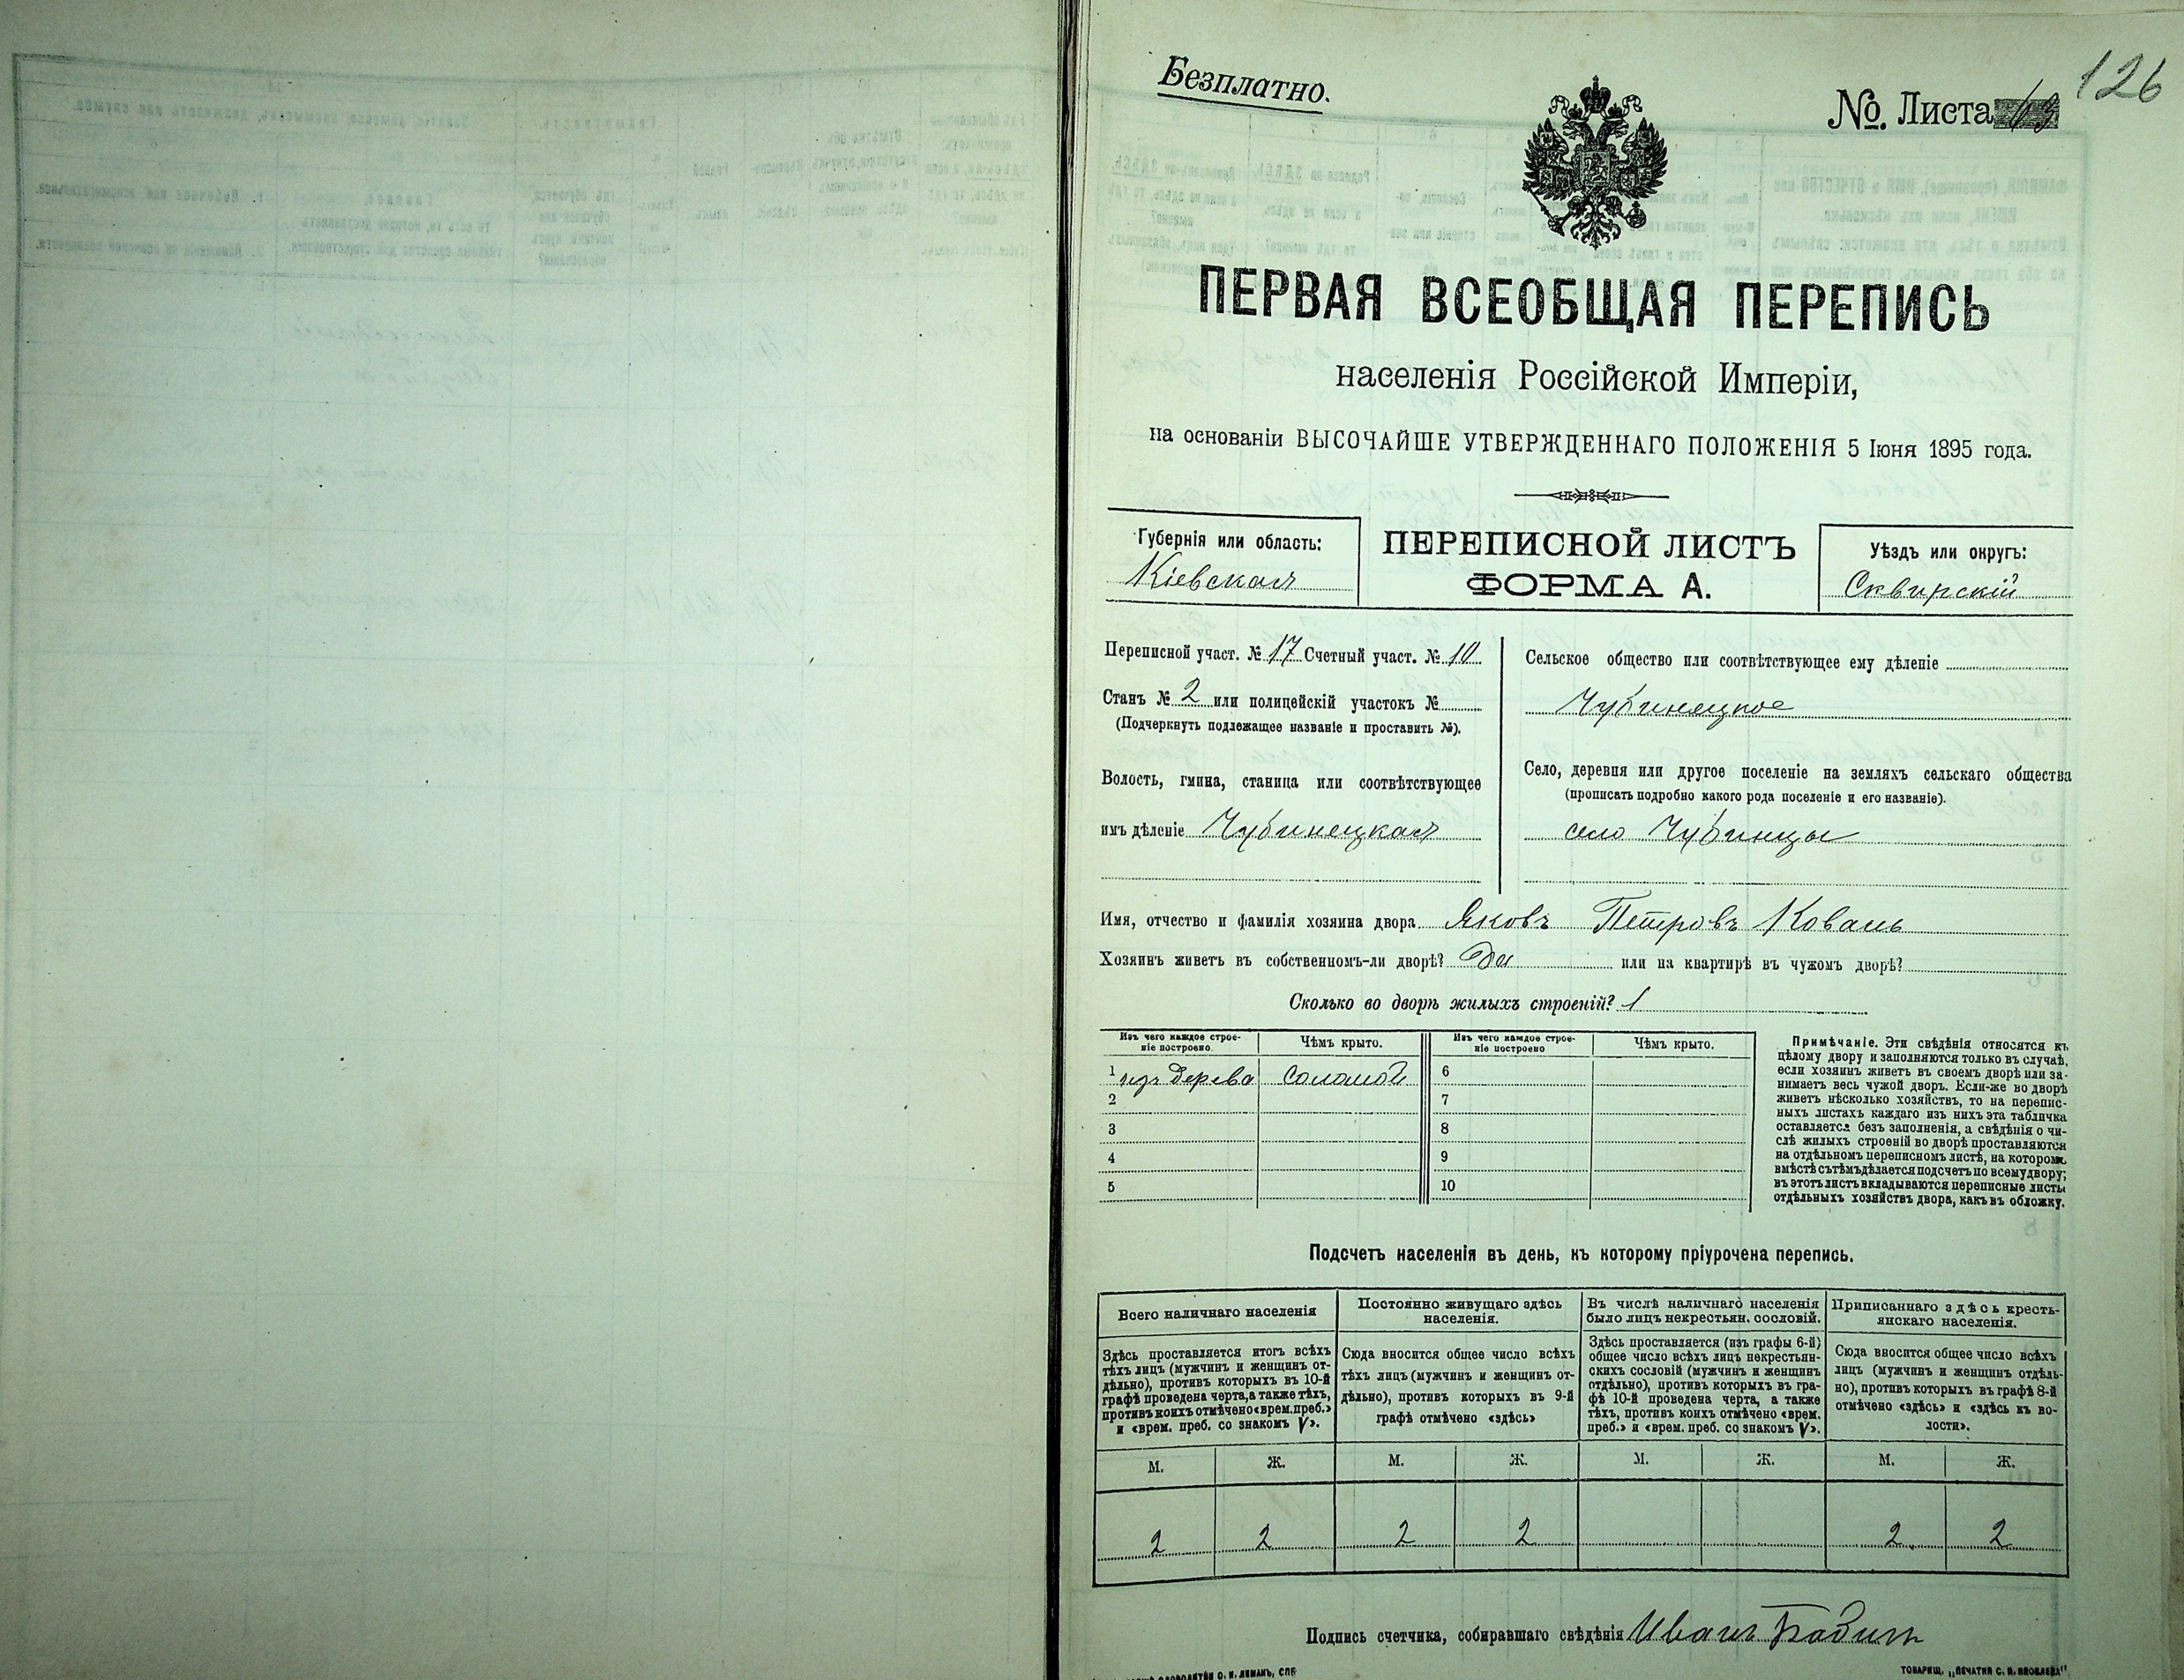 Безплатно.
№ Листа 63
126
ПЕРВАЯ ВСЕОБЩАЯ ПЕРЕПИСЬ
населенія Россійской Имперіи,
на основаніи ВЫСОЧАЙШЕ УТВЕРЖДЕННАГО ПОЛОЖЕНІЯ 5 Іюня 1895 года.
Губернія или область:
Кіевская
ПЕРЕПИСНОЙ ЛИСТЪ
ФОРМА А.
Уѣздъ или округъ:
Сквирскій
Переписной участ. № 17 Счетный участ. № 10
Станъ № 2 или полицейскій участокъ №
(Подчеркнуть подлежащее названіе и проставить №).
Волость, гмина, станица или соотвѣтствующее
имъ дѣленіе Чубинецкая
Сельское общество или соотвѣтствующее ему дѣленіе
Чубинецкое
Село, деревня или другое поселеніе на земляхъ сельскаго общества
(прописать подробно какого рода поселеніе и его названіе).
село Чубинцы
Имя, отчество и фамилія хозяина двора Яковъ Петровъ Коваль
Хозяинъ живетъ въ собственномъ-ли дворѣ? Да или на квартирѣ въ чужомъ дворѣ?
Сколько во дворѣ жилыхъ строеній? 1
Изъ чего каждое строе-
ніе построено.
Чѣмъ крыто.
Изъ чего каждое строе-
ніе построено
Чѣмъ крыто.
1 изъ дерева соломой 6
2 7
3 8
4 9
5 10
Примѣчаніе. Эти свѣдѣнія относятся къ
цѣлому двору и заполняются только въ случаѣ,
если хозяинъ живетъ въ своемъ дворѣ или за-
нимаетъ весь чужой дворъ. Если-же во дворѣ
живетъ нѣсколько хозяйствъ, то на перепис-
ныхъ листахъ каждаго изъ нихъ эта табличка
оставляется безъ заполненія, а свѣдѣнія о чи-
слѣ жилыхъ строеній во дворѣ проставляются
на отдѣльномъ переписномъ листѣ, на которомъ
вмѣстѣ съ тѣмъ дѣлается подсчетъ по всему двору;
въ этотъ листъ вкладываются переписные листы
отдѣльныхъ хозяйствъ двора, какъ въ обложку.
Подсчетъ населенія въ день, къ которому пріурочена перепись.
Всего наличнаго населенія
Здѣсь проставляется итогъ всѣхъ
тѣхъ лицъ (мужчинъ и женщинъ от-
дѣльно), противъ которыхъ въ 10-й
графѣ проведена черта, а также тѣхъ,
противъ коихъ отмѣчено «врем. преб.»
и «врем. преб. со знакомъ V».
Постоянно живущаго здѣсь
населенія.
Сюда вносится общее число всѣхъ
тѣхъ лицъ (мужчинъ и женщинъ от-
дѣльно), противъ которыхъ въ 9-й
графѣ отмѣчено «здѣсь»
Въ числѣ наличнаго населенія
было лицъ некрестьян. сословій.
Здѣсь проставляется (изъ графы 6-й)
общее число всѣхъ лицъ некрестьян-
скихъ сословій (мужчинъ и женщинъ
отдѣльно), противъ которыхъ въ гра-
фѣ 10-й проведена черта, а также
тѣхъ, противъ коихъ отмѣчено «врем.
преб.» и «врем. преб. со знакомъ V».
Приписаннаго здѣсь кресть-
янскаго населенія.
Сюда вносится общее число всѣхъ
лицъ (мужчинъ и женщинъ отдѣль-
но), противъ которыхъ въ графѣ 8-й
отмѣчено «здѣсь» и «здѣсь къ во-
лости».
М. Ж. М. Ж. М. Ж. М. Ж.
2 2 2 2 2 2
Подпись счетчика, собиравшаго свѣдѣнія Иванъ
О. И. ЛЕМАНЪ, СПБ
ТОВАРИЩ. „ПЕЧАТНЯ С. П. ЯКОВЛЕВА“